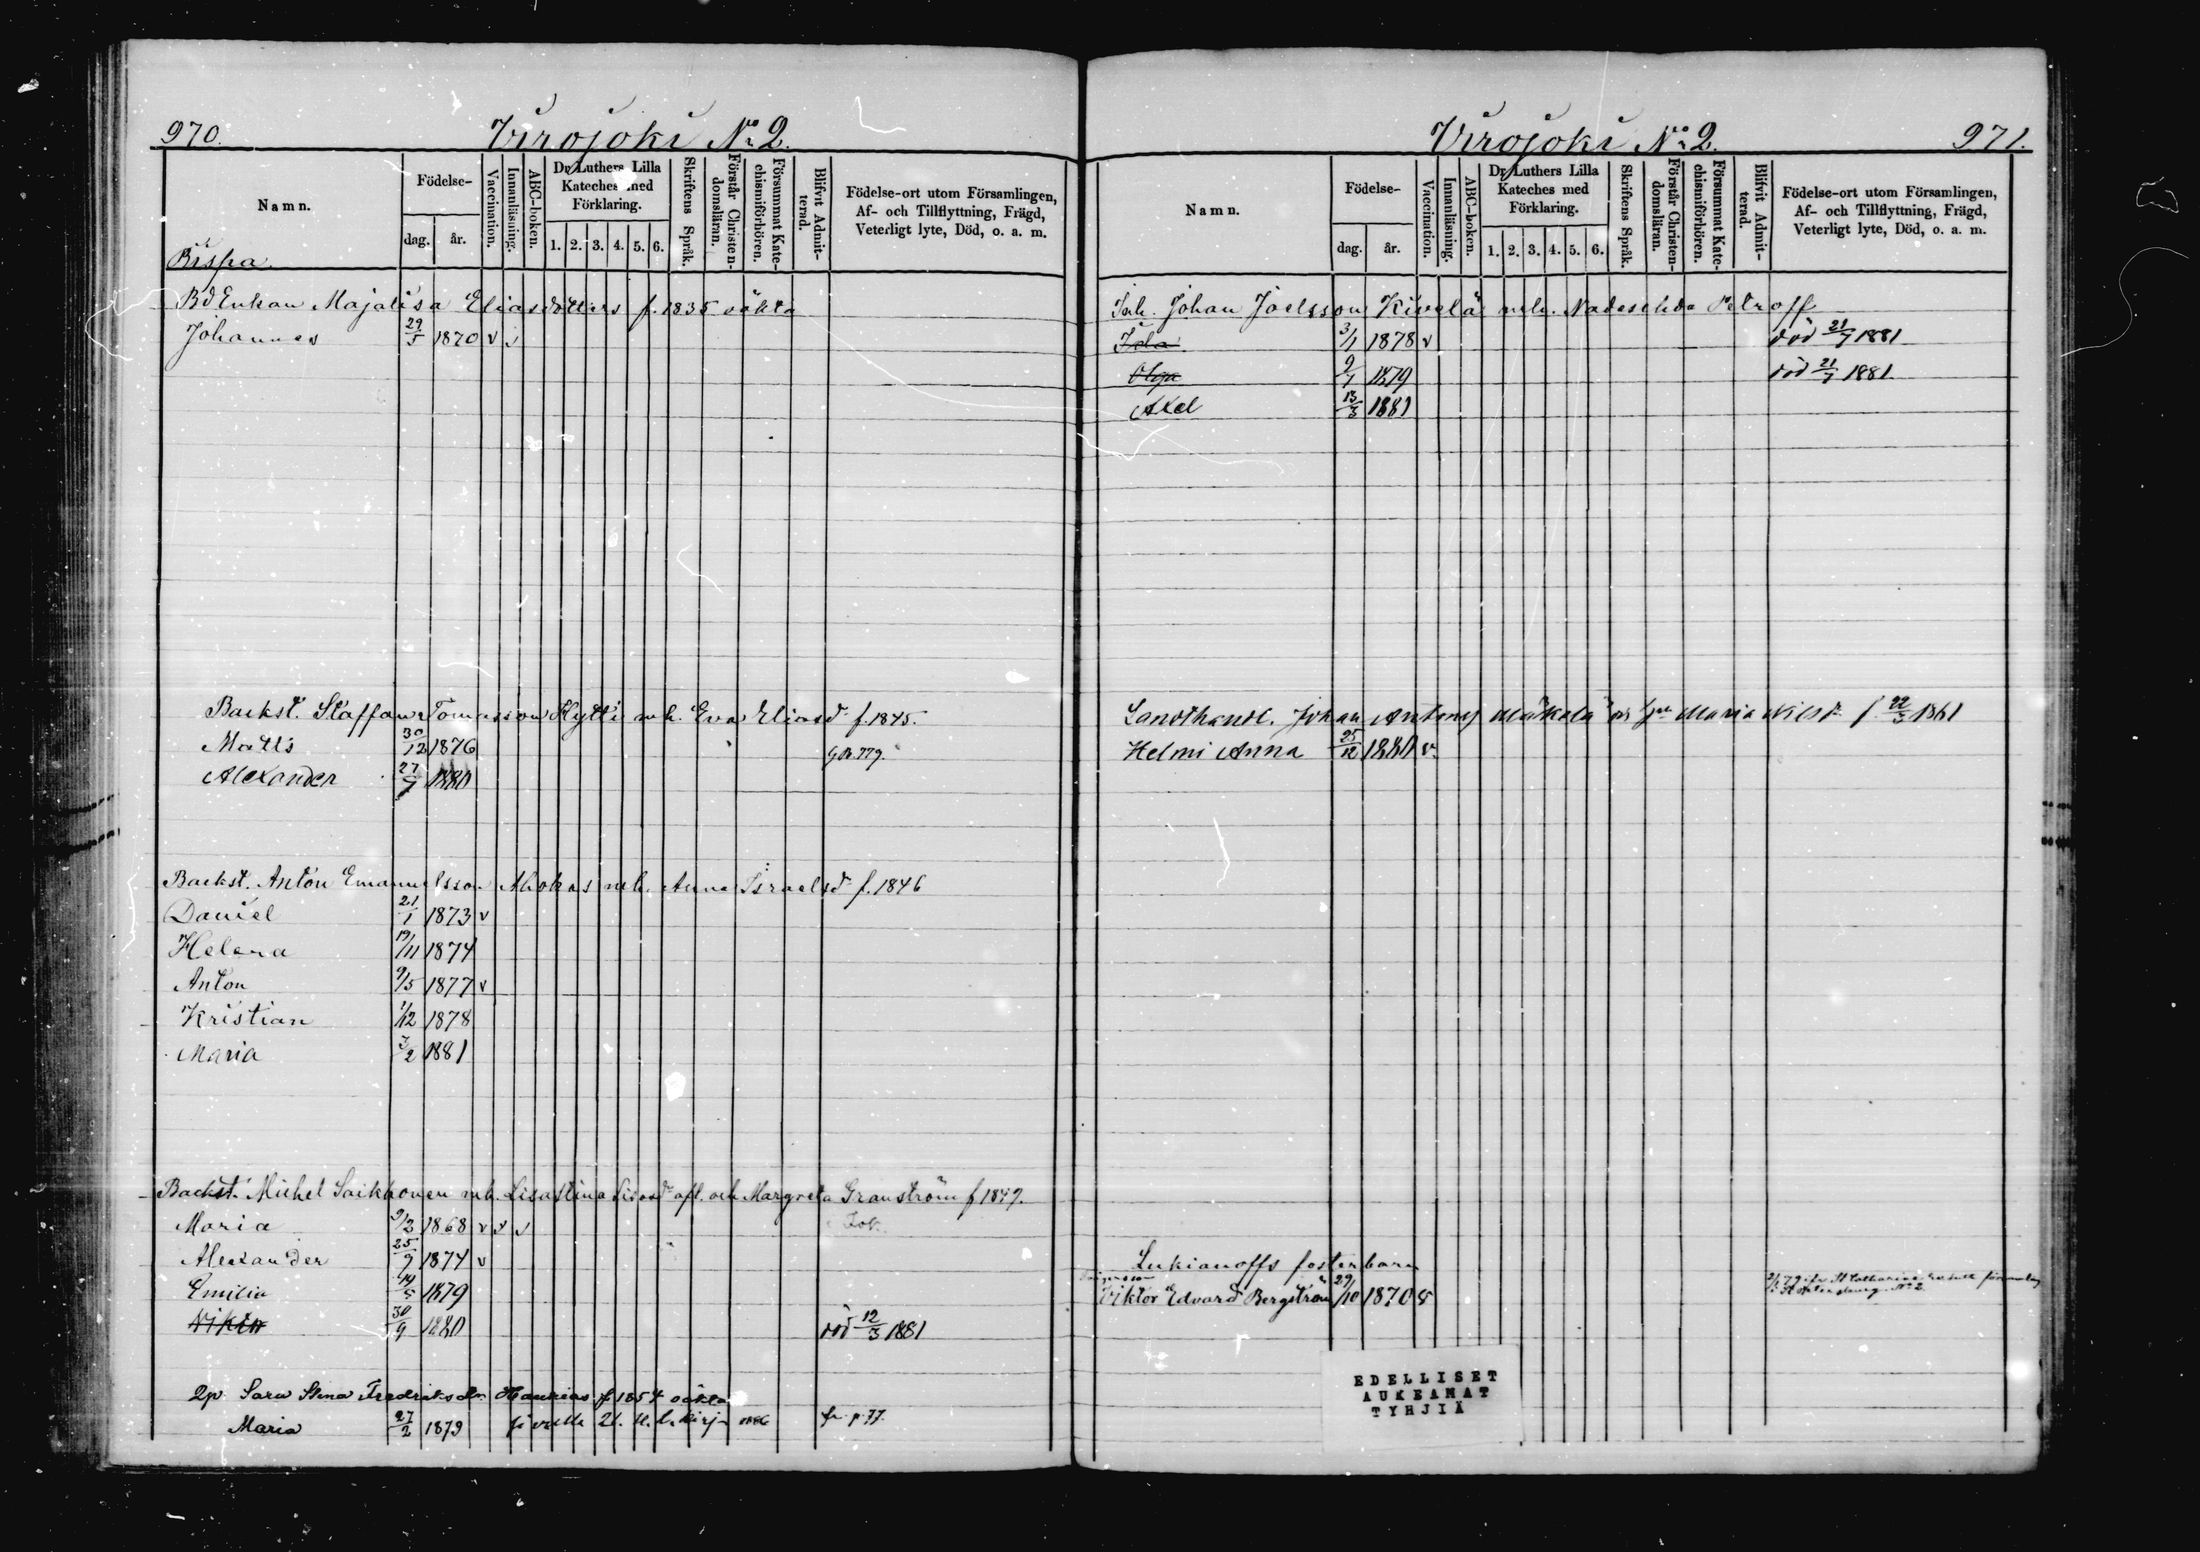 970. Virojoki No 2.
Namn.
Födelse-
dag. år.
Vaccination.
Innanläsning.
ABC-boken.
Dr Luthers Lilla Kateches med Förklaring.
1. 2. 3. 4. 5. 6.
Skriftens Språk.
Förstår Christendomsläran.
Försummat Katechismiförhören.
Blifvit Admitterad.
Födelse-ort utom Församlingen,
Af- och Tillflyttning, Frägd,
Veterligt lyte, Död, o. a. m.
Bispa.
Bd Enkan Majalisa Eliasdotters f. 1835 oäkta
Johannes 29/5 1870 v v
Backst. Staffan Tomasson Kytti m h. Eva Eliasd f. 1845.
Matts 30/12 1876
Alexander 27/7 1880
Backst. Anton Emanuelsson Ahokas m h. Anna Israelsd f. 1846
Daniel 21/1 1873 v
Helena 19/11 1874
Anton 9/5 1877 v
Kristian 1/12 1878
Maria 3/2 1881
Backst. Michel Saikkonen m h. Lisastina afl. och Margreta Granström f 1849.
Maria 9/2 1868 v v v
Alexander 25/9 1874 v
Emilia 14/5 1879
Viktor 30/9 1880 död 12/3 1881
Qp Sara Stina Fredriksdr Haukias f 1854 oäkta
Maria 27/2 1879 fr p. 77.
Virojoki No 2. 971.
Namn.
Födelse-
dag. år.
Vaccination.
Innanläsning.
ABC-boken.
Dr Luthers Lilla Kateches med Förklaring.
1. 2. 3. 4. 5. 6.
Skriftens Språk.
Förstår Christendomsläran.
Försummat Katechismiförhören.
Blifvit Admitterad.
Födelse-ort utom Församlingen,
Af- och Tillflyttning, Frägd,
Veterligt lyte, Död, o. a. m.
Inh. Johan Joelsson Kivelä m h. Nadeschda Petroff.
Ida 3/1 1878 v död 21/7 1881
Olga 9/7 1879 död 21/7 1881
Axel 13/3 1881
Landthandl. Johan Anton Mäkelä Maria Nilsd. f 22/3 1861
Helmi Anna 25/12 1880 v.
Lukianoffs fosterbarn
Viktor Edvard Bergström 29/10 1870 v
EDELLISET
AUKEAMAT
TYHJIÄ